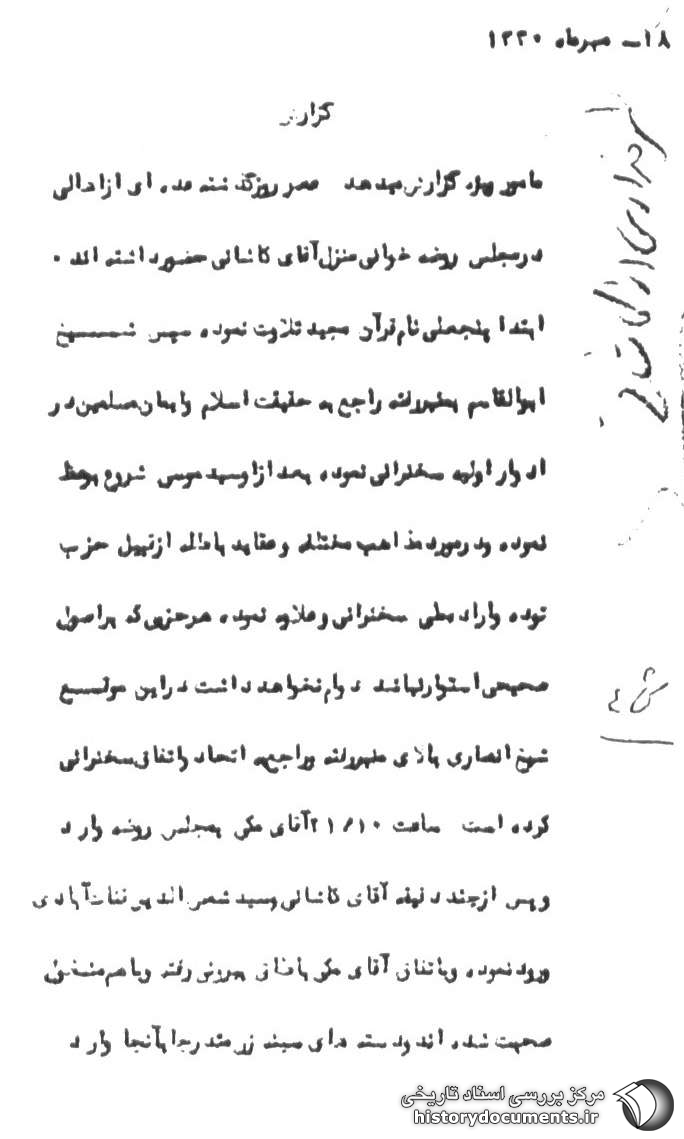 ۱۸ـ مهرماه ۱۳۳۰
گزارش
مامور ویژه گزارش میدهد عصر روز گذشته عده ای از اهالی
در مجلس روضه خوانی منزل آقای کاشانی حضور داشته اند ۰
ابتدا پنجعلی نام قرآن مجید تلاوت نموده سپس شیخ
ابوالقاسم بمنبر رفته راجع به حقیقت اسلام و ایمان مسلمین در
ادوار اولیه سخنرانی نموده بعد از او سید موسی شروع بوعظ
نموده و در مورد مذاهب مختلفه و عقاید باطله از قبیل حزب
توده و اراد سخنرانی و علاوه نموده هر حزبی که بر اصول
صحیحی استوار نباشد دوام نخواهد داشت در این موقع
شیخ انصاری بالای منبر رفته و راجع به اتحاد و اتفاق سخنرانی
کرده است ساعت ۲۱/۱۰ آقای مکی بمجلس روضه وارد
و پس از چند دقیقه آقای کاشانی و سید شمس الدین قنات آبادی
ورود نموده و باتفاق آقای مکی باطاق بیرونی رفته و با هم مشغول
صحبت شده اند و دسته های سینه زن مندرجا بآنجا وارد
مرکز بررسی اسناد تاریخی
historydocuments.ir